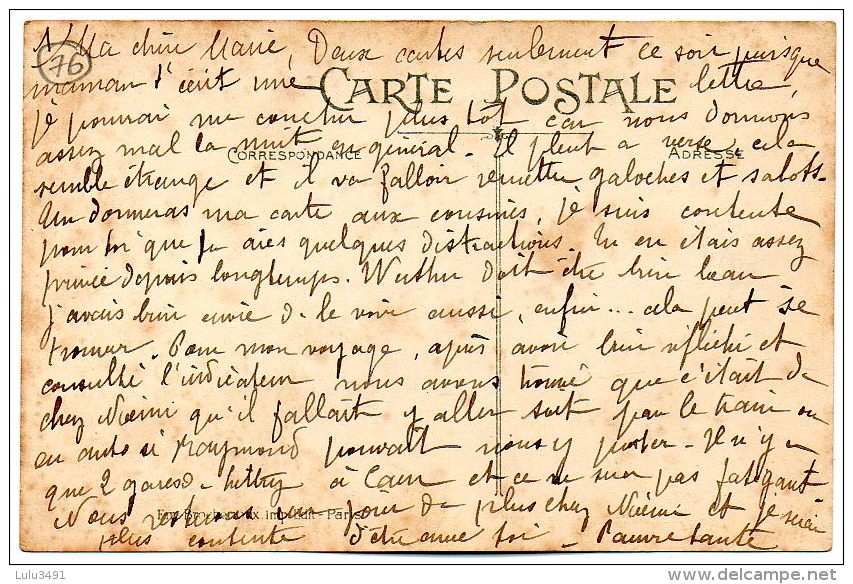 Ma chère Marie, Deux cartes seulement ce soir puisque
76
maman t'écrit une lettre,
CARTE POSTALE
je pourrai me coucher plus tôt car nous dormons
assez mal la nuit en général. Il pleut a verse, cela
CORRESPONDANCE
ADRESSE
semble étrange et il va falloir remettre galoches et sabots.
donneras ma carte aux cousines, je suis contente
pour toi que tu aies quelques distractions. Tu en étais assez
privée depuis longtemps. Werther doit être bien beau
j'avais bien envie de le voir aussi, enfin... cela peut se
trouver. Pour mon voyage, après avoir bien réfléchi et
consulté l'indicateur nous avons trouvé que c'était de
chez Noémi qu'il fallait y aller soit par le train ou
en auto si Raymond pouvait nous y porter. Il n'y a
que 2 gares à Caen et ce ne sera pas fatigant
Nous un jour de plus chez Noémi et je serai
Paris
plus contente d'être avec toi. Pauvre tante
Lulu3491
http://www.delcampe.net